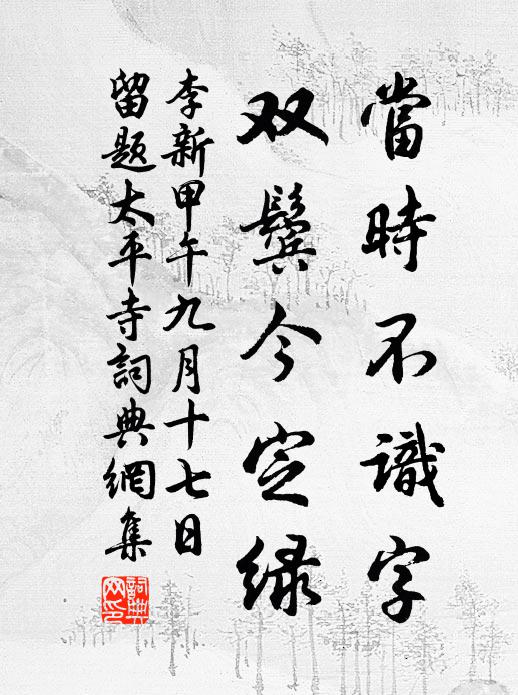 當時不識字
双鬓今定绿
李新甲午九月十七日
留题太平寺詞典網集
詞典网印